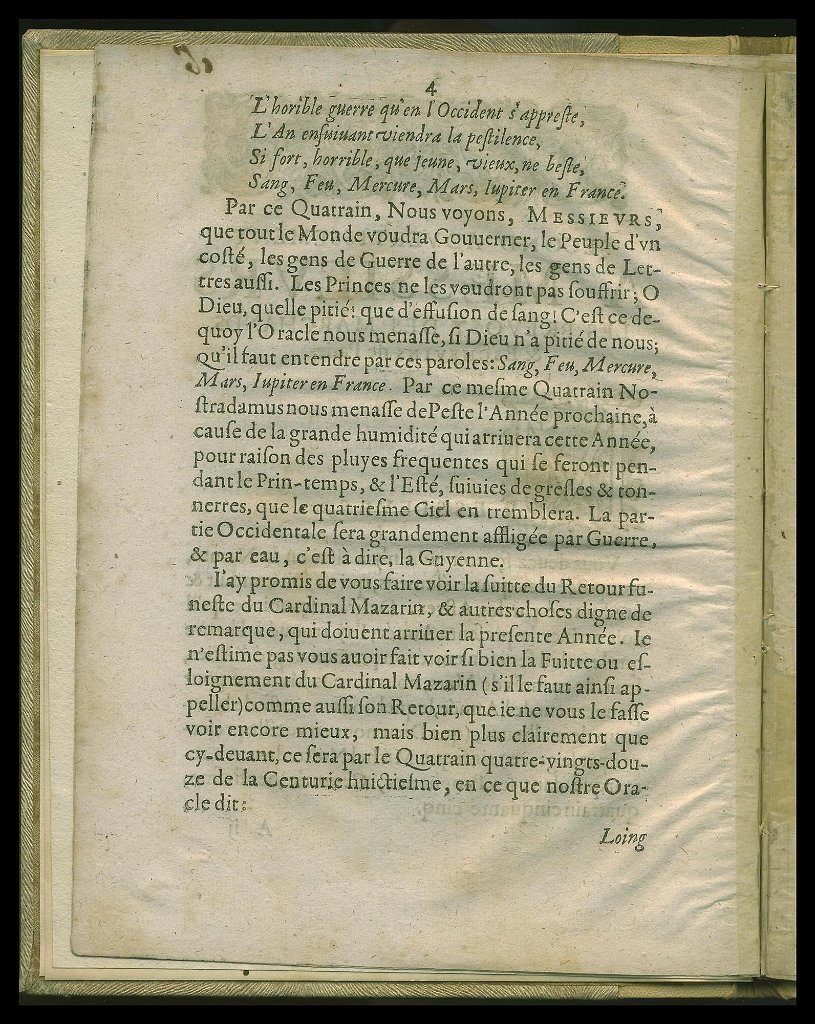 4
L'horible guerre qu'en l'Occident s'appreste,
L'An ensuiuant viendra la pestilence,
Si fort, horrible, que jeune, vieux, ne beste,
Sang, Feu, Mercure, Mars, Iupiter en France.
Par ce Quatrain, Nous voyons, MESSIEVRS,
que tout le Monde voudra Gouuerner, le Peuple d'vn
costé, les gens de Guerre de l'autre, les gens de Let-
tres aussi. Les Princes ne les voudront pas souffrir; O
Dieu, quelle pitié! que d'effusion de sang! C'est ce de-
quoy l'Oracle nous menasse, si Dieu n'a pitié de nous;
Qu'il faut entendre par ces paroles: Sang, Feu, Mercure,
Mars, Iupiter en France. Par ce mesme Quatrain No-
stradamus nous menasse de Peste l'Année prochaine, à
cause de la grande humidité qui arriuera cette Année,
pour raison des pluyes frequentes qui se feront pen-
dant le Prin-temps, & l'Esté, suiuies de gresles & ton-
nerres, que le quatriesme Ciel en tremblera. La par-
tie Occidentale sera grandement affligée par Guerre,
& par eau, c'est à dire, la Guyenne.
I'ay promis de vous faire voir la suitte du Retour fu-
neste du Cardinal Mazarin, & autres choses digne de
remarque, qui doiuent arriuer la presente Année. Ie
n'estime pas vous auoir fait voir si bien la Fuitte ou es-
loignement du Cardinal Mazarin (s'il le faut ainsi ap-
peller) comme aussi son Retour, que ie ne vous le fasse
voir encore mieux, mais bien plus clairement que
cy-deuant, ce sera par le Quatrain quatre-vingts-dou-
ze de la Centurie huictiesme, en ce que nostre Ora-
cle dit:
Loing